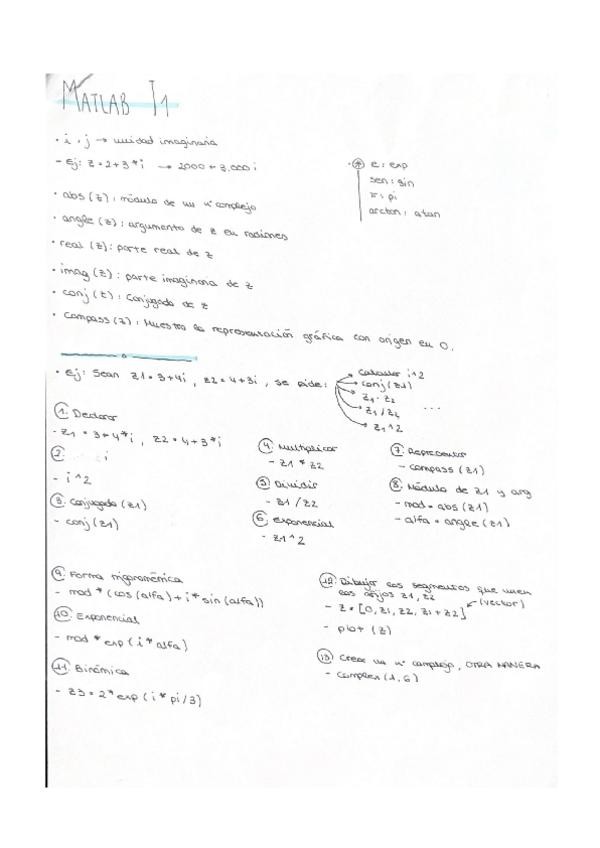 MATLAB T1
· i, j → unidad imaginaria
- Ej: z=2+3*i → 2000 + 3.000i
· abs(z): módulo de un nº complejo
· angle(z): argumento de z en radianes
· real(z): parte real de z
· imag(z): parte imaginaria de z
· conj(z): Conjugado de z
· compass(z): Muestra la representación gráfica con origen en 0.
· * e: exp
sen: sin
π: pi
arctan: atan
· Ej: Sean z1=3+4i, z2=4+3i, se pide:
calcular i^2
conj(z1)
z1·z2
z1/z2
z1^2
...
1. Declarar
- z1=3+4*i, z2=4+3*i
2. i
- i^2
3. Conjugado (z1)
- conj(z1)
4. Multiplicar
- z1*z2
5. Dividir
- z1/z2
6. Exponencial
- z1^2
7. Representar
- compass(z1)
8. Módulo de z1 y arg
- mod=abs(z1)
- alfa=angle(z1)
9. Forma trigonométrica
- mod*(cos(alfa)+i*sin(alfa))
10. Exponencial
- mod*exp(i*alfa)
11. Binómica
- z3=2*exp(i*pi/3)
12. Dibujar los segmentos que unen
los afijos z1, z2
- z=[0, z1, z2, z1+z2] ← (vector)
- plot(z)
13. Crear un nº complejo, OTRA MANERA
- complex(1,6)